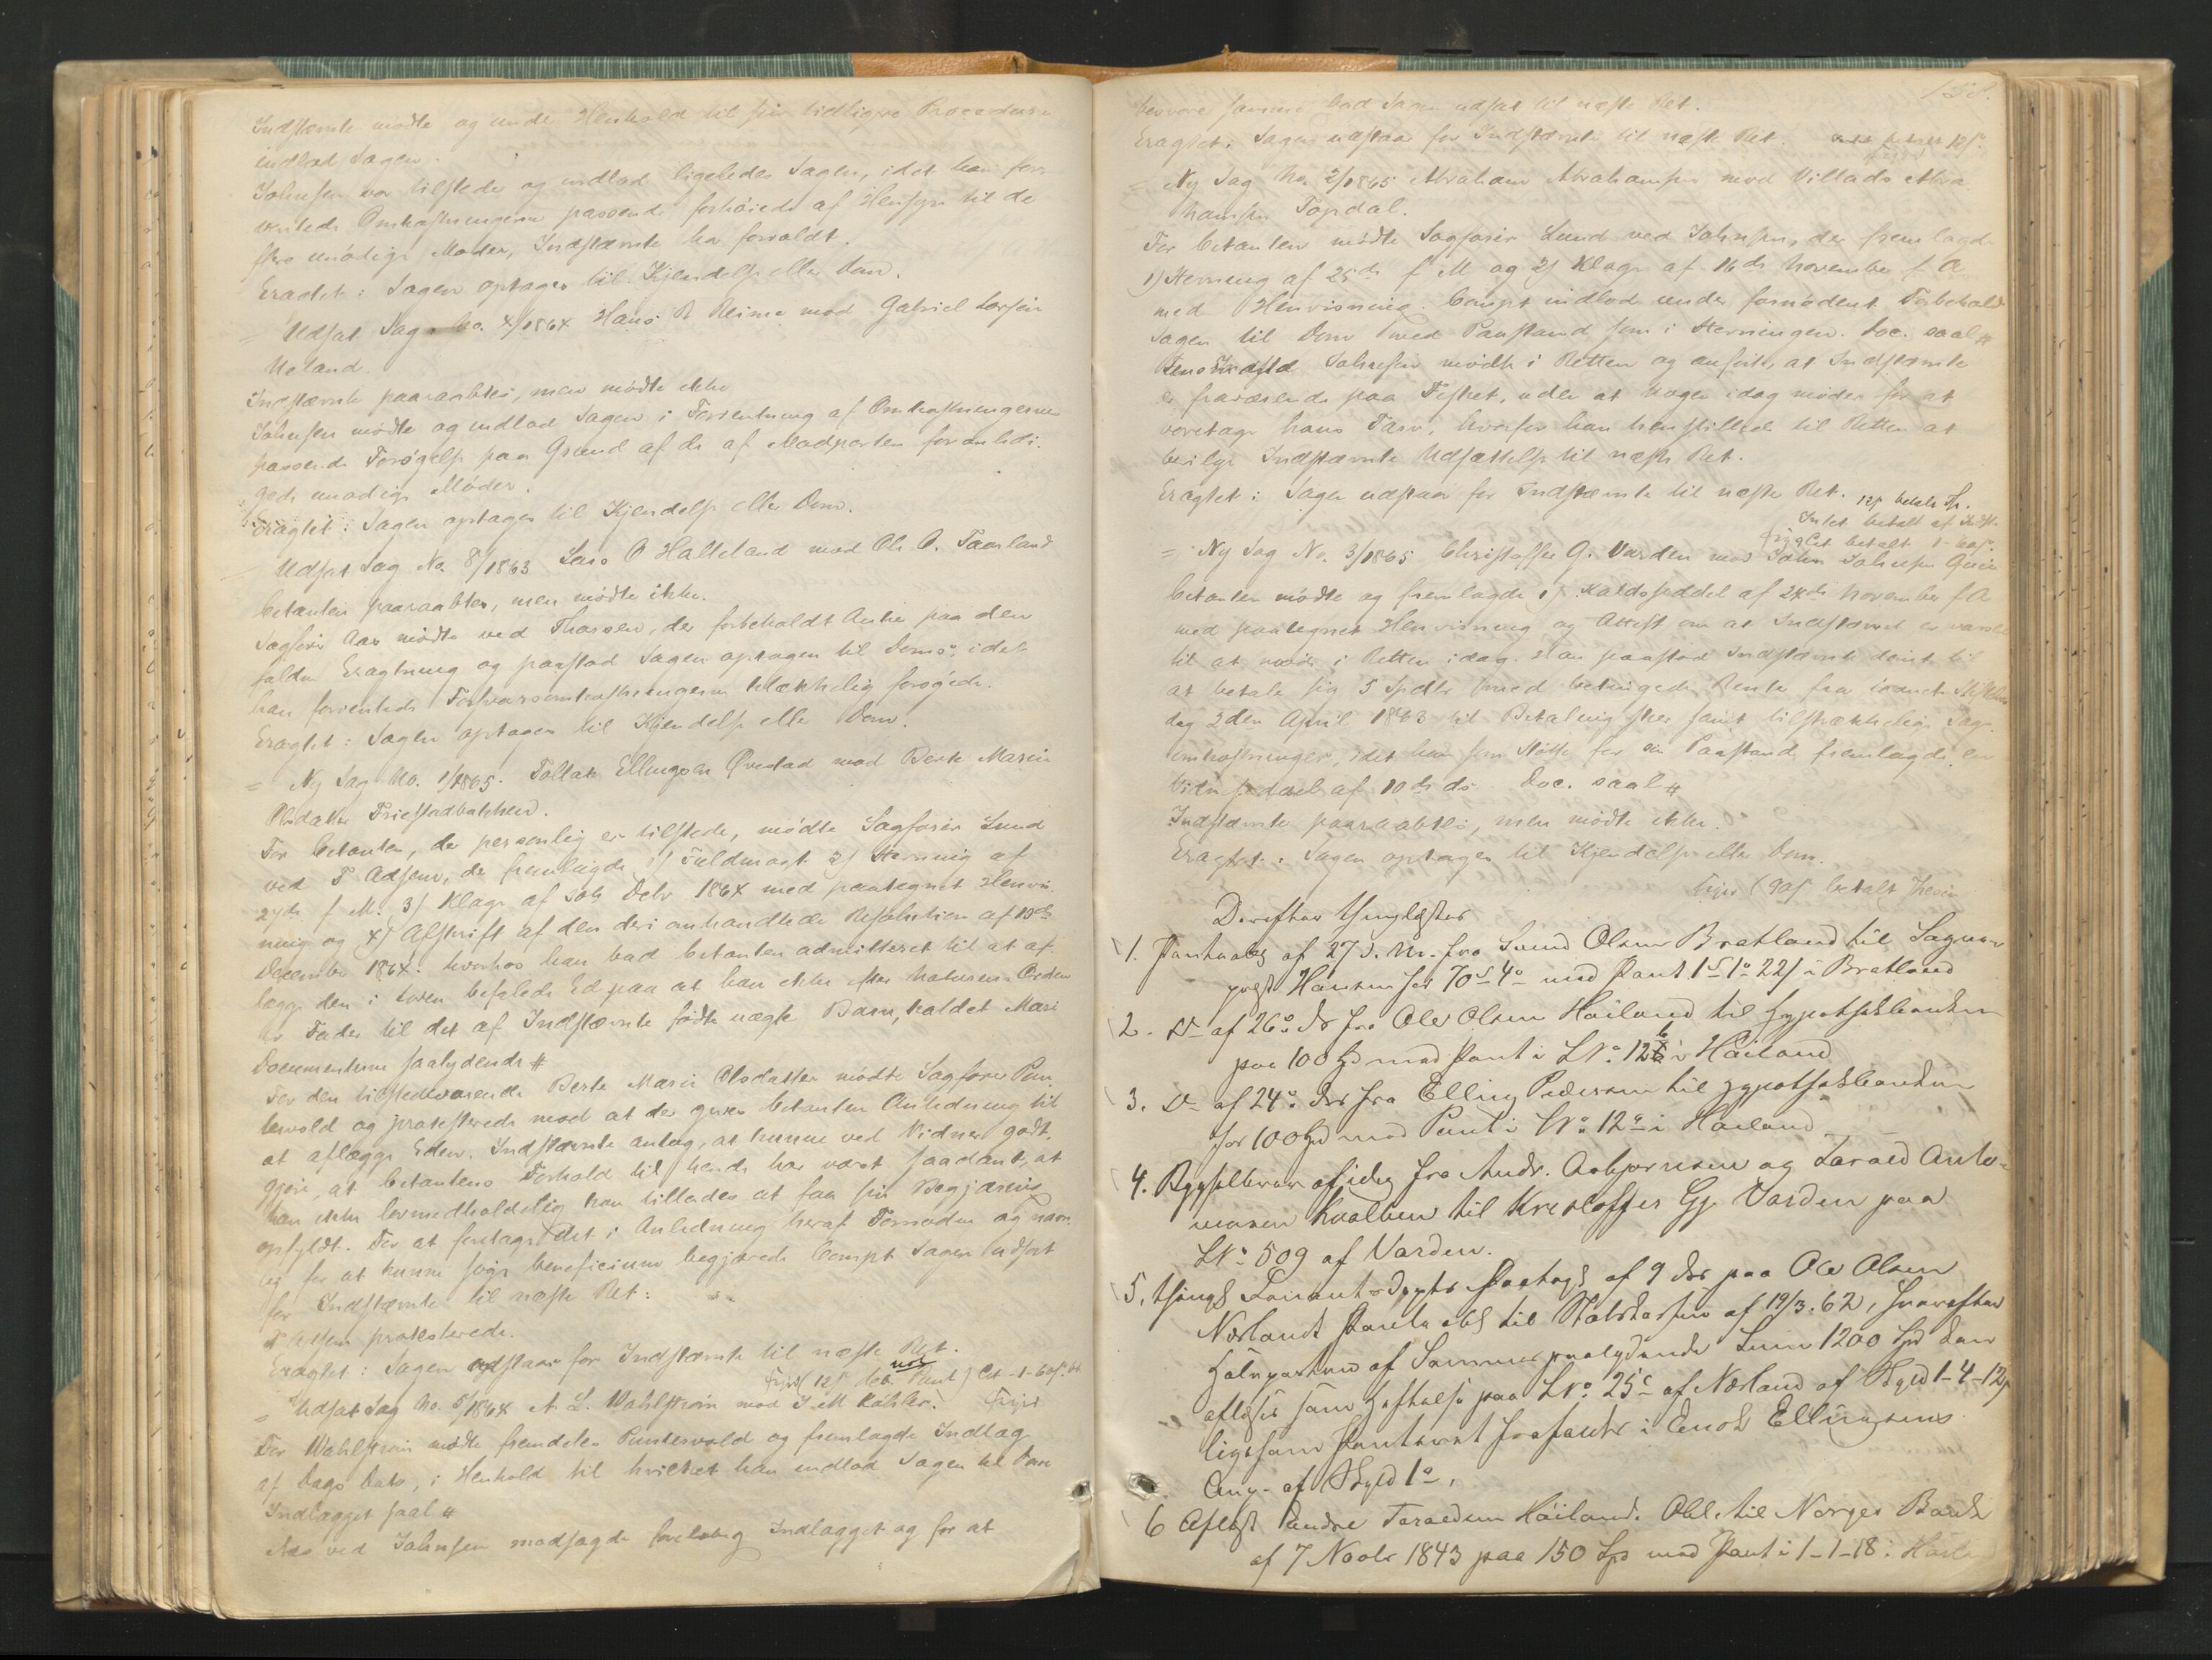 Indstævnte mødte og under Henhold til sin tidligere Procedure
indlod Sagen.
Johnsen var tilstede og indlod ligeledes Sagen, idet han for-
ventede Omkostningerne passende forhøiede af Hensyn til de
flere unødige Møder, Indstævnte har forvoldt.
Eragtet: Sagen optages til Kjendelse eller Dom.
= Udsat Sag No. 4/1864 Hans R Reime mod Gabriel
Ueland.
Indstævnte paaraabtes, men mødte ikke
Johnsen mødte og indlod Sagen i Forventning af Omkostningernes
passende Forøgelse paa Grund af de af Modparten foranledi-
gede unødige Møder.
Eragtet: Sagen optages til Kjendelse eller Dom.
Udsat Sag No. 8/1863 Lars O Halleland mod Ole O. Faarland
Citanten paaraabtes, men mødte ikke.
Sagfører Aas mødte ved Thorsen, der forbeholdt Anke paa den
faldne Eragtning og paastod Sagen optagen til Doms, idet
han forventede Forsvarsomkostningerne tilstrækkelig forøgede.
Eragtet: Sagen optages til Kjendelse eller Dom.
= Ny Sag No. 1/1865. Tollak Ellingsen Qvestad mod Berte Marie
Olsdatter Friestadbakken.
For Citanten, der personlig er tilstede, mødte Sagfører Lund
ved T Adsen, der fremlagde 1/ Fuldmagt 2/ Stævning af
27de f. M. 3/ Klage af Debr 1864 med paategnet Henvis-
ning og 4/ Afskrift af den deri omhandlede Resolution af 13de
December 1864: hvorhos han bad Citanten admitteret til at af-
lægge den i Loven befalede Ed paa at han ikke efter Naturens Orden
er Fader til det af Indstævnte fødte uægte Barn, kaldet Mari
Documenterne saalydende #
For den tilstedeværende Berte Marie Olsdatter mødte Sagfører Pun-
tervold og protesterede mod at der gives Citanten Anledning til
at aflægge Eden. Indstævnte antog, at kunne ved Vidner godt-
gjøre, at Citantens Forhold til hende har været saadant, at
han ikke lovmedholdelig kan tillades at faa sin Begjæring
opfyldt. For at foretage det i Anledning heraf Fornødne og navn-
lig for at kunne søge beneficium begjærede Compt Sagen udsat
for Indstævnte til næste Ret:
T Adsen protesterede.
Eragtet: Sagen udstaar for Indstævnte til næste Ret.
= Udsat Sag No. 5/1864 A L. Wahlstrøm mod J M Køhler.
For Wahlstrøm mødte fremdeles Puntervold og fremlagde Indlæg
af Dags Dato, i Henhold til hvilket han indlod Sagen til Dom
Indlægget saal #
Aas ved Johnsen modsagde foreløbig Indlægget og for at
besvare samme bad Sagen udsat til næste Ret.
Eragtet: Sagen udstaar for Indstævnte til næste Ret.
= Ny Sag No. 2/1865 Abraham Abrahamsen mod Villads Abra-
hamsen Topdal.
For Citanten mødte Sagfører Lund ved Johnsen, der fremlagde
1) Stævning af 25de f M og 2/ Klage af 16de November f A
med Henvisning. Compt indlod under fornødent Forbehold
Sagen til Dom med Paastand som i Stævningen. Doc. saal #
Johnsen mødte i Retten og anførte, at Indstævnte
er fraværende paa Fisket, uden at Nogen idag møder for at
varetage hans Tarv, hvorfor han henstillede til Retten at
bevilge Indstævnte Udsættelse til næste Ret.
Eragtet: Sagen udstaar for Indstævnte til næste Ret.
= Ny Sag No. 3/1865 Christoffer G. Varden mod John Johnsen
Citanten mødte og fremlagde 1) Kaldsseddel af 28de November f A
med paategnet Henvisning og Attest om at Indstævnte er varslet
til at møde i Retten idag. Han paastod Indstævnte dømt til
at betale sig 5 Spdlr med betinget Rente fra
dag 2den April 1863 til Betaling sker samt tilstrækkelige Sags-
omkostninger, idet han som Støtte for sin Paastand fremlagde en
af 10de ds. Doc. saal #
Indstævnte paaraabtes, men mødte ikke.
Eragtet: Sagen optages til Kjendelse eller Dom.
Derefter thinglæstes
1. Pantoblg af 27 d. M. fra Svend Olsen Bratland til Sogne-
præst Hansen for 70 S 4 o med Pant 1 S 1 o 22/ i Bratland
2. Do af 26 ds fra Ole Olsen Høiland til Hypothekbanken
paa 100 Spd mod Pant i LNo: 12b i Høiland
3. Do af 24 ds fra Elling Pedersen til Hypothekbanken
for 100 Spd mod Pant i LNo. 12a i Høiland
4. Bygselbrev af idag fra Andr. Asbjørnsen og Tarald Anto-
niesen Kvalben til Kristoffer Gj. Varden paa
LNo: 509 af Varden.
5. Thingl af 9 ds paa Ole Olsen
Nørland Pantobl til Statskassen af 19/3.62, hvorefter
Halvparten af Sammes paalydende Sum 1200 Spd
afløses som Heftelse paa LNo: 25c af Nørland af Skyld 1-4-12/
ligesom Panteret frafaldes i Enok Ellingsens
Eng. af Skyld 1o.
6 Aflyst Endre Taraldsen Høiland Obl. til Norges Bank
af 7 Novbr 1843 paa 150 Spd mod Pant i 1-1-18 i Høiland